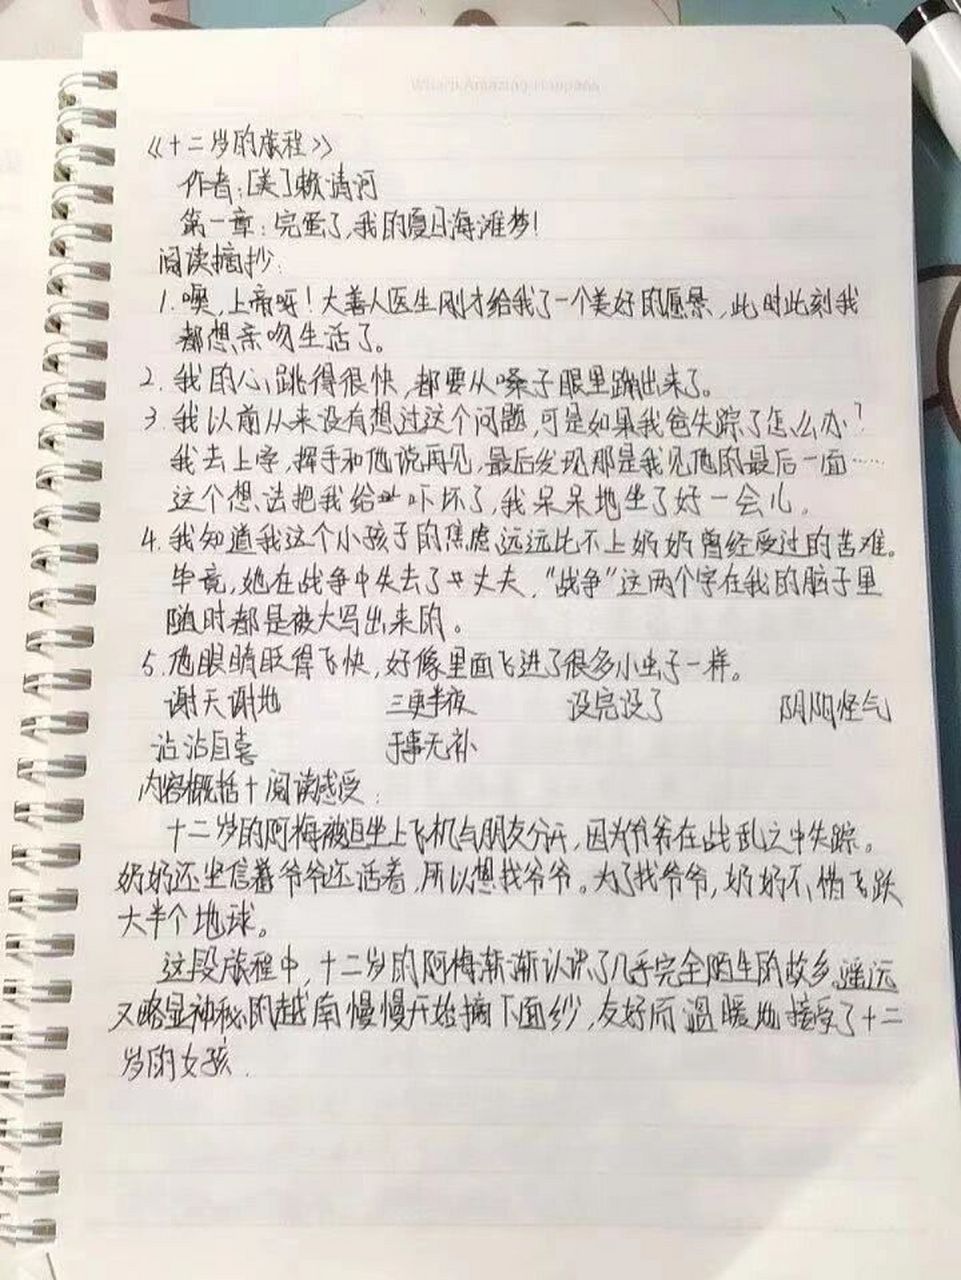 What Amazing Happens
《十二岁的旅程》
作者:[美]赖清河
第一章:完蛋了,我的夏日海滩梦!
阅读摘抄:
1.噢,上帝呀!大善人医生刚才给我了一个美好的愿景,此时此刻我
都想亲吻生活了。
2.我的心跳得很快,都要从嗓子眼里蹦出来了。
3.我以前从来没有想过这个问题,可是如果我爸失踪了怎么办?
我去上学,挥手和他说再见,最后发现那是我见他的最后一面……
这个想法把我给吓坏了,我呆呆地坐了好一会儿。
4.我知道我这个小孩子的焦虑远远比不上奶奶曾经受过的苦难。
毕竟,她在战争中失去了丈夫,“战争”这两个字在我的脑子里
随时都是被大写出来的。
5.他眼睛眨得飞快,好像里面飞进了很多小虫子一样。
谢天谢地 三更半夜 没完没了 阴阳怪气
沾沾自喜 于事无补
内容概括+阅读感受:
十二岁的阿梅被迫坐上飞机与朋友分开,因为爷爷在战乱之中失踪。
奶奶还坚信着爷爷还活着,所以想找爷爷。为了找爷爷,奶奶不惜飞跃
大半个地球。
这段旅程中,十二岁的阿梅渐渐认识了几乎完全陌生的故乡。遥远
又略显神秘的越南慢慢开始摘下面纱,友好而温暖地接受了十二
岁的女孩.